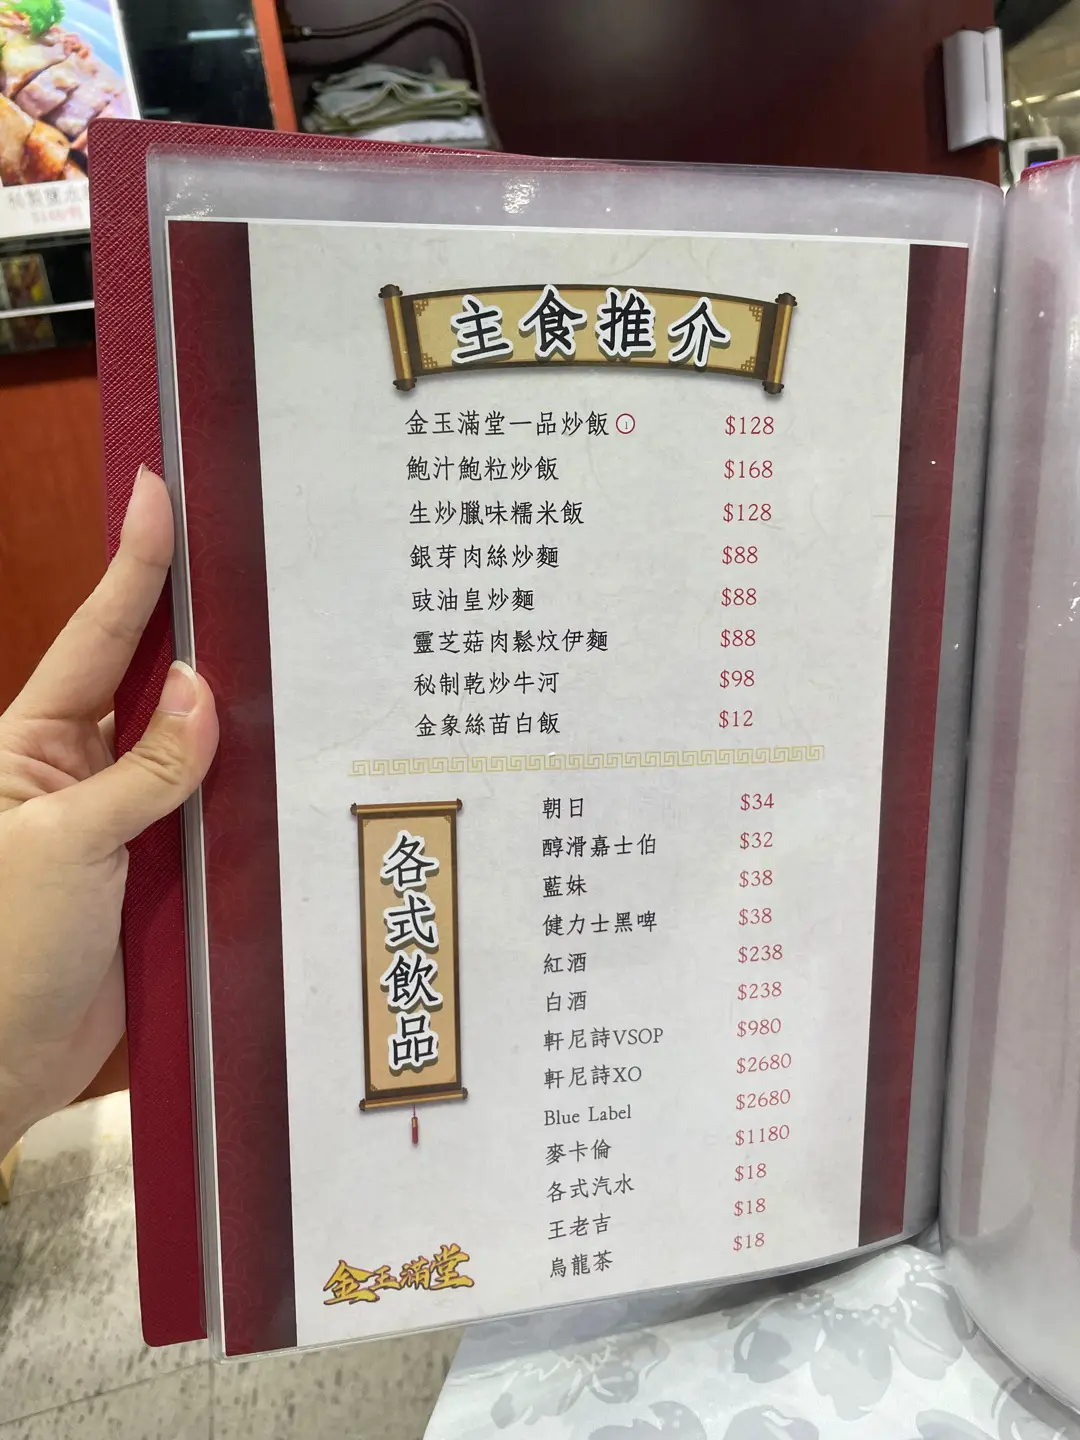 主食推介
金玉滿堂一品炒飯 $128
鮑汁鮑粒炒飯 $168
生炒臘味糯米飯 $128
銀芽肉絲炒麵 $88
豉油皇炒麵 $88
靈芝菇肉鬆炆伊麵 $88
秘制乾炒牛河 $98
金象絲苗白飯 $12
各式飲品
朝日 $34
醇滑嘉士伯 $32
藍妹 $38
健力士黑啤 $38
紅酒 $238
白酒 $238
軒尼詩VSOP $980
軒尼詩XO $2680
Blue Label $2680
麥卡倫 $1180
各式汽水 $18
王老吉 $18
烏龍茶 $18
金玉滿堂